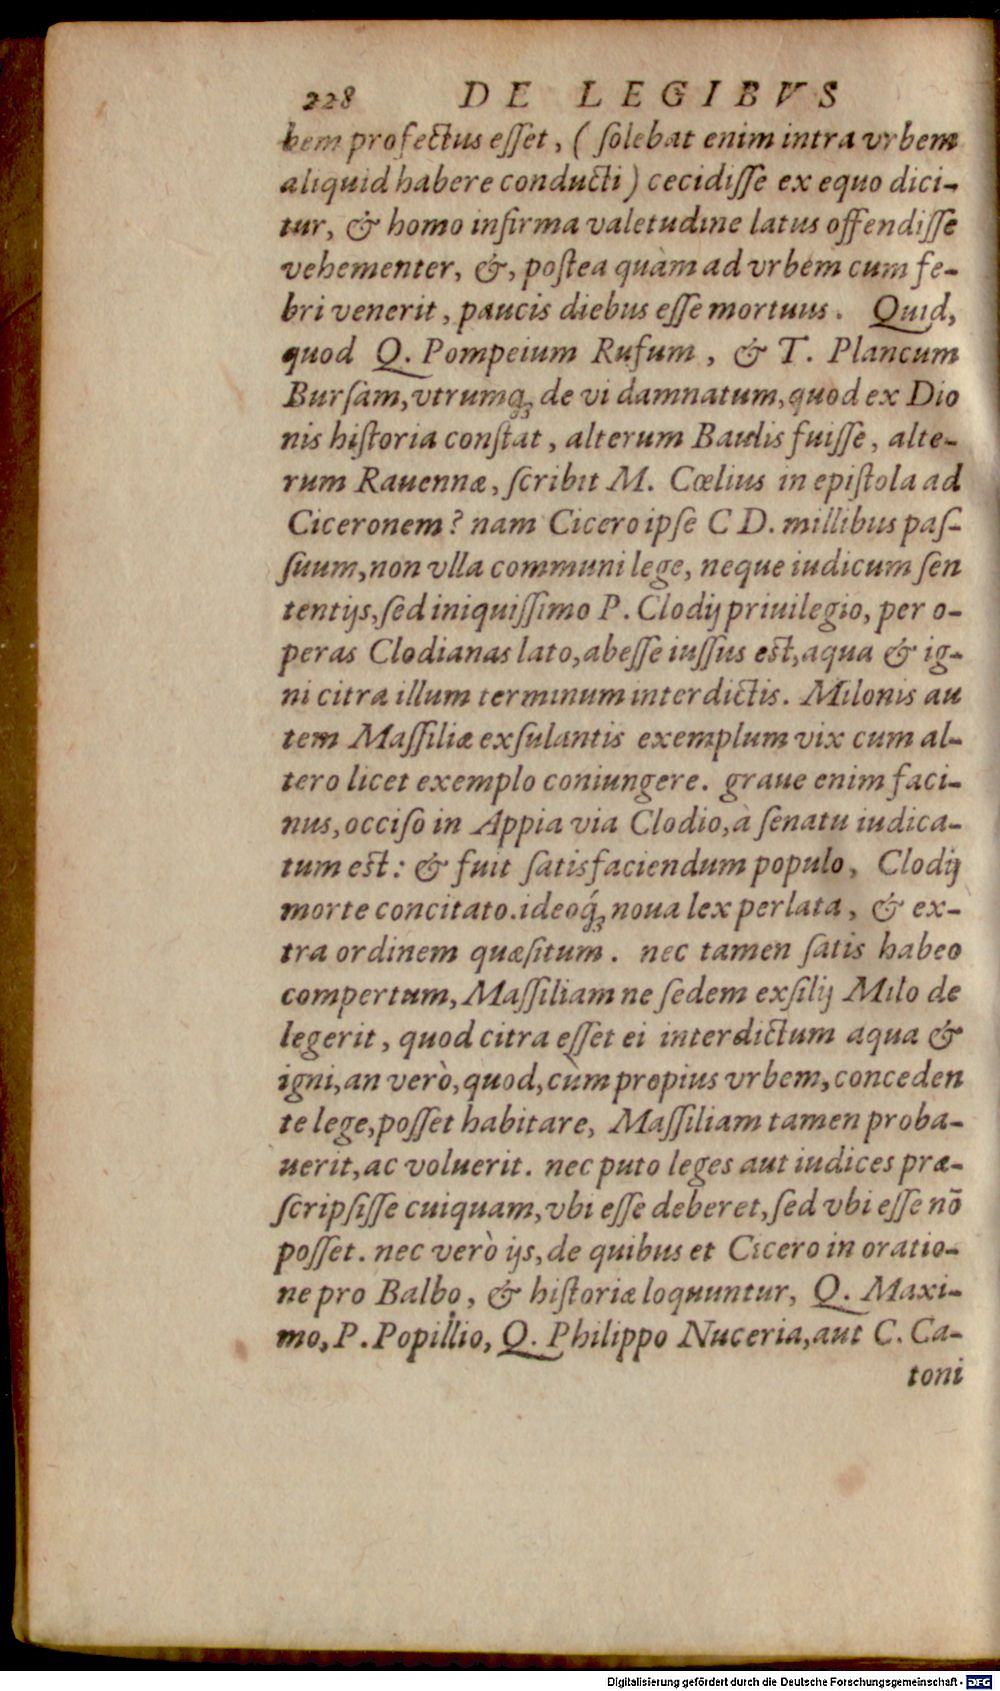 228 DE LEGIBVS
bem profectus eſſet, (ſolebat enim intra vrbem
aliquid habere conducti) cecidiſſe ex equo dici-
tur, & homo infirma valetudine latus offendiſſe
vehementer, &, poſtea quàm ad vrbem cum fe-
bri venerit, paucis diebus eſſe mortuus. Quid,
quod Q. Pompeium Rufum, & T. Plancum
Burſam, vtrumq; de vi damnatum, quod ex Dio
nis hiſtoria conſtat, alterum Baulis fuiſſe, alte-
rum Rauennæ, ſcribit M. Cœlius in epiſtola ad
Ciceronem? nam Cicero ipſe C D. millibus paſ-
ſuum, non vlla communi lege, neque iudicum ſen
tentijs, ſed iniquiſſimo P. Clodij priuilegio, per o-
peras Clodianas lato, abeſſe iuſſus eſt, aqua & ig-
ni citra illum terminum interdictis. Milonis au
tem Maſſiliæ exſulantis exemplum vix cum al-
tero licet exemplo coniungere. graue enim faci-
nus, occiſo in Appia via Clodio, à ſenatu iudica-
tum eſt: & fuit ſatisfaciendum populo, Clodij
morte concitato. ideoq́; noua lex perlata, & ex-
tra ordinem quæſitum. nec tamen ſatis habeo
compertum, Maſſiliam ne ſedem exſilij Milo de
legerit, quod citra eſſet ei interdictum aqua &
igni, an verò, quod, cùm propius vrbem, conceden
te lege, poſſet habitare, Maſſiliam tamen proba-
uerit, ac voluerit. nec puto leges aut iudices præ-
ſcripſiſſe cuiquam, vbi eſſe deberet, ſed vbi eſſe nō
poſſet. nec verò ijs, de quibus et Cicero in oratio-
ne pro Balbo, & hiſtoriæ loquuntur, Q. Maxi-
mo, P. Popillio, Q. Philippo Nuceria, aut C. Ca-
toni
Digitalisierung gefördert durch die Deutsche Forschungsgemeinschaft - DFG